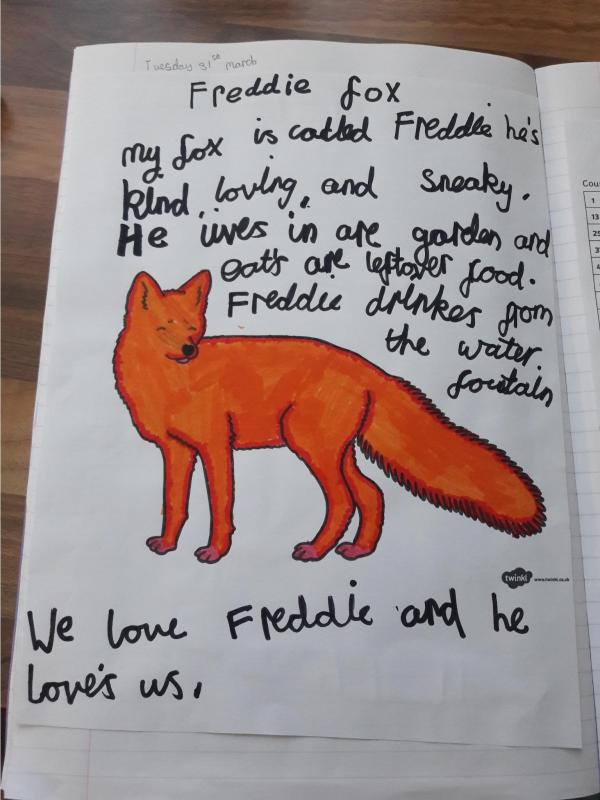 Tuesday 31st march
Freddie fox
my fox is called Freddie he's
kind, loving, and sneaky.
He lives in are garden and
eats are leftover food.
Freddie drinkes from
the water.
foutain
twinkl www.twinkl.co.uk
We love Freddie and he
love's us.
Cou
1
13
25